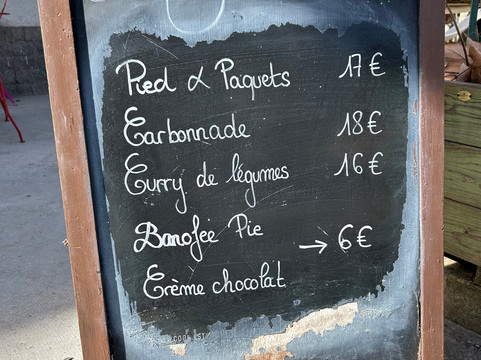 Pied & Paquets 17 €
Carbonnade 18 €
Curry de légumes 16 €
Banofee Pie
→ 6 €
Crème chocolat